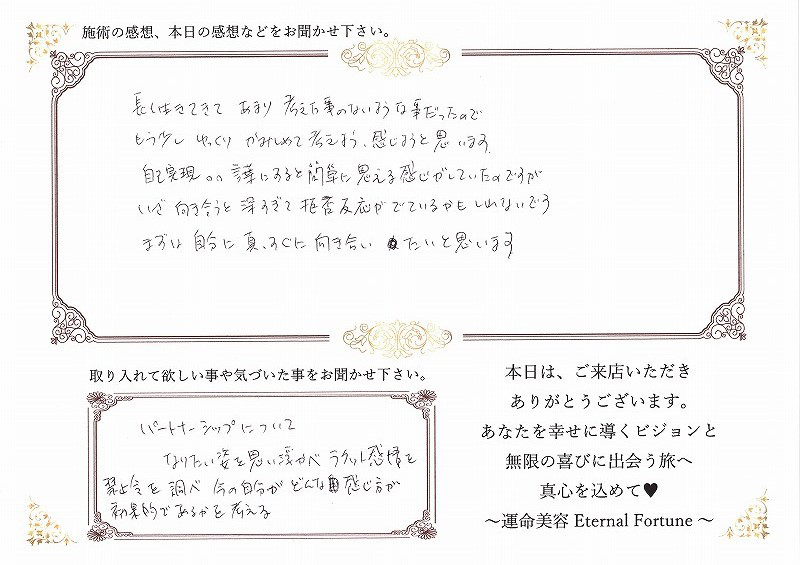 施術の感想、本日の感想などをお聞かせ下さい。
長く生きてきて あまり 考えた事のないような事だったので
もう少し ゆっくり かみしめて考えよう、感じようと思います。
自己実現。。言葉にすると簡単に思える感じがしていたのですが
いざ 向き合うと 深すぎて 拒否反応がでているかもしれないです
まずは 自分に 真っすぐに 向き合いたいと思います
取り入れて欲しい事や気づいた事をお聞かせ下さい。
パートナーシップについて
なりたい姿を思い浮かべ 感情を
禁止令を調べ 今の自分がどんな感じ方が
効果的であるかを考える
本日は、ご来店いただき
ありがとうございます。
あなたを幸せに導くビジョンと
無限の喜びに出会う旅へ
真心を込めて♥
～運命美容 Eternal Fortune～